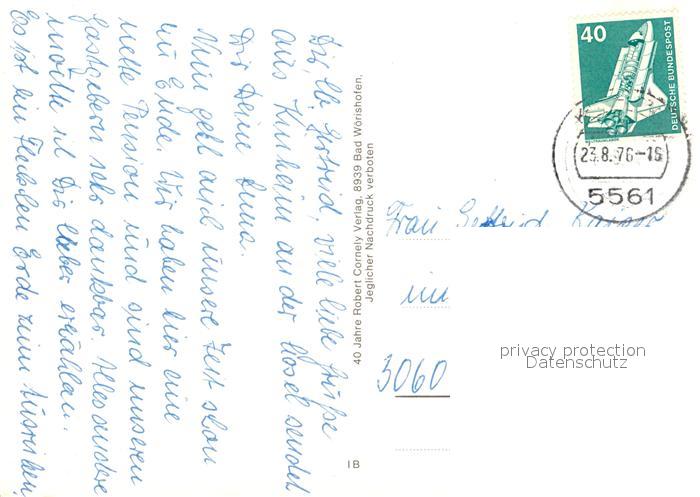 Dir, lb. Gertrud, viele liebe Grüße
aus Kinheim an der Mosel sendet
Dir Deine Anna.
Nun geht auch unsere Zeit schon
zu Ende. Wir haben hier eine
nette Pension und sind unseren
Gastgebern sehr dankbar. Alles andere
möchte ich Dir lieber erzählen.
Es ist ein Fleckchen Erde zum Ausruhen.
40 Jahre Robert Cornely Verlag, 8939 Bad Wörishofen.
Jeglicher Nachdruck verboten
I B
40
DEUTSCHE BUNDESPOST
23.8.76-16
5561
Frau
3060
privacy protection
Datenschutz